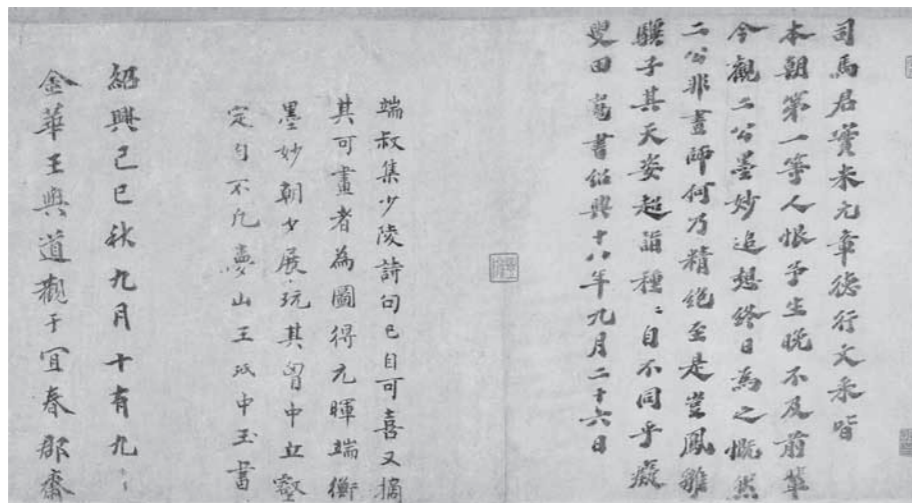 司馬君實米元章德行文采皆
本朝第一等人恨予生晚不及前輩
今觀二公墨妙追想終日為之慨然
二公非畫師何乃精絶至是豈鳳雛
驥子其天姿超詣種〻自不同乎癡
叟田 書紹興十八年九月二十六日
端叔集少陵詩句已自可喜又摘
其可畫者為圖得元暉端衡
墨妙朝夕展玩其胷中丘壑
定自不凡 山王 中玉書
紹興己巳秋九月十有九〻
金華王與道觀于宜春郡齋